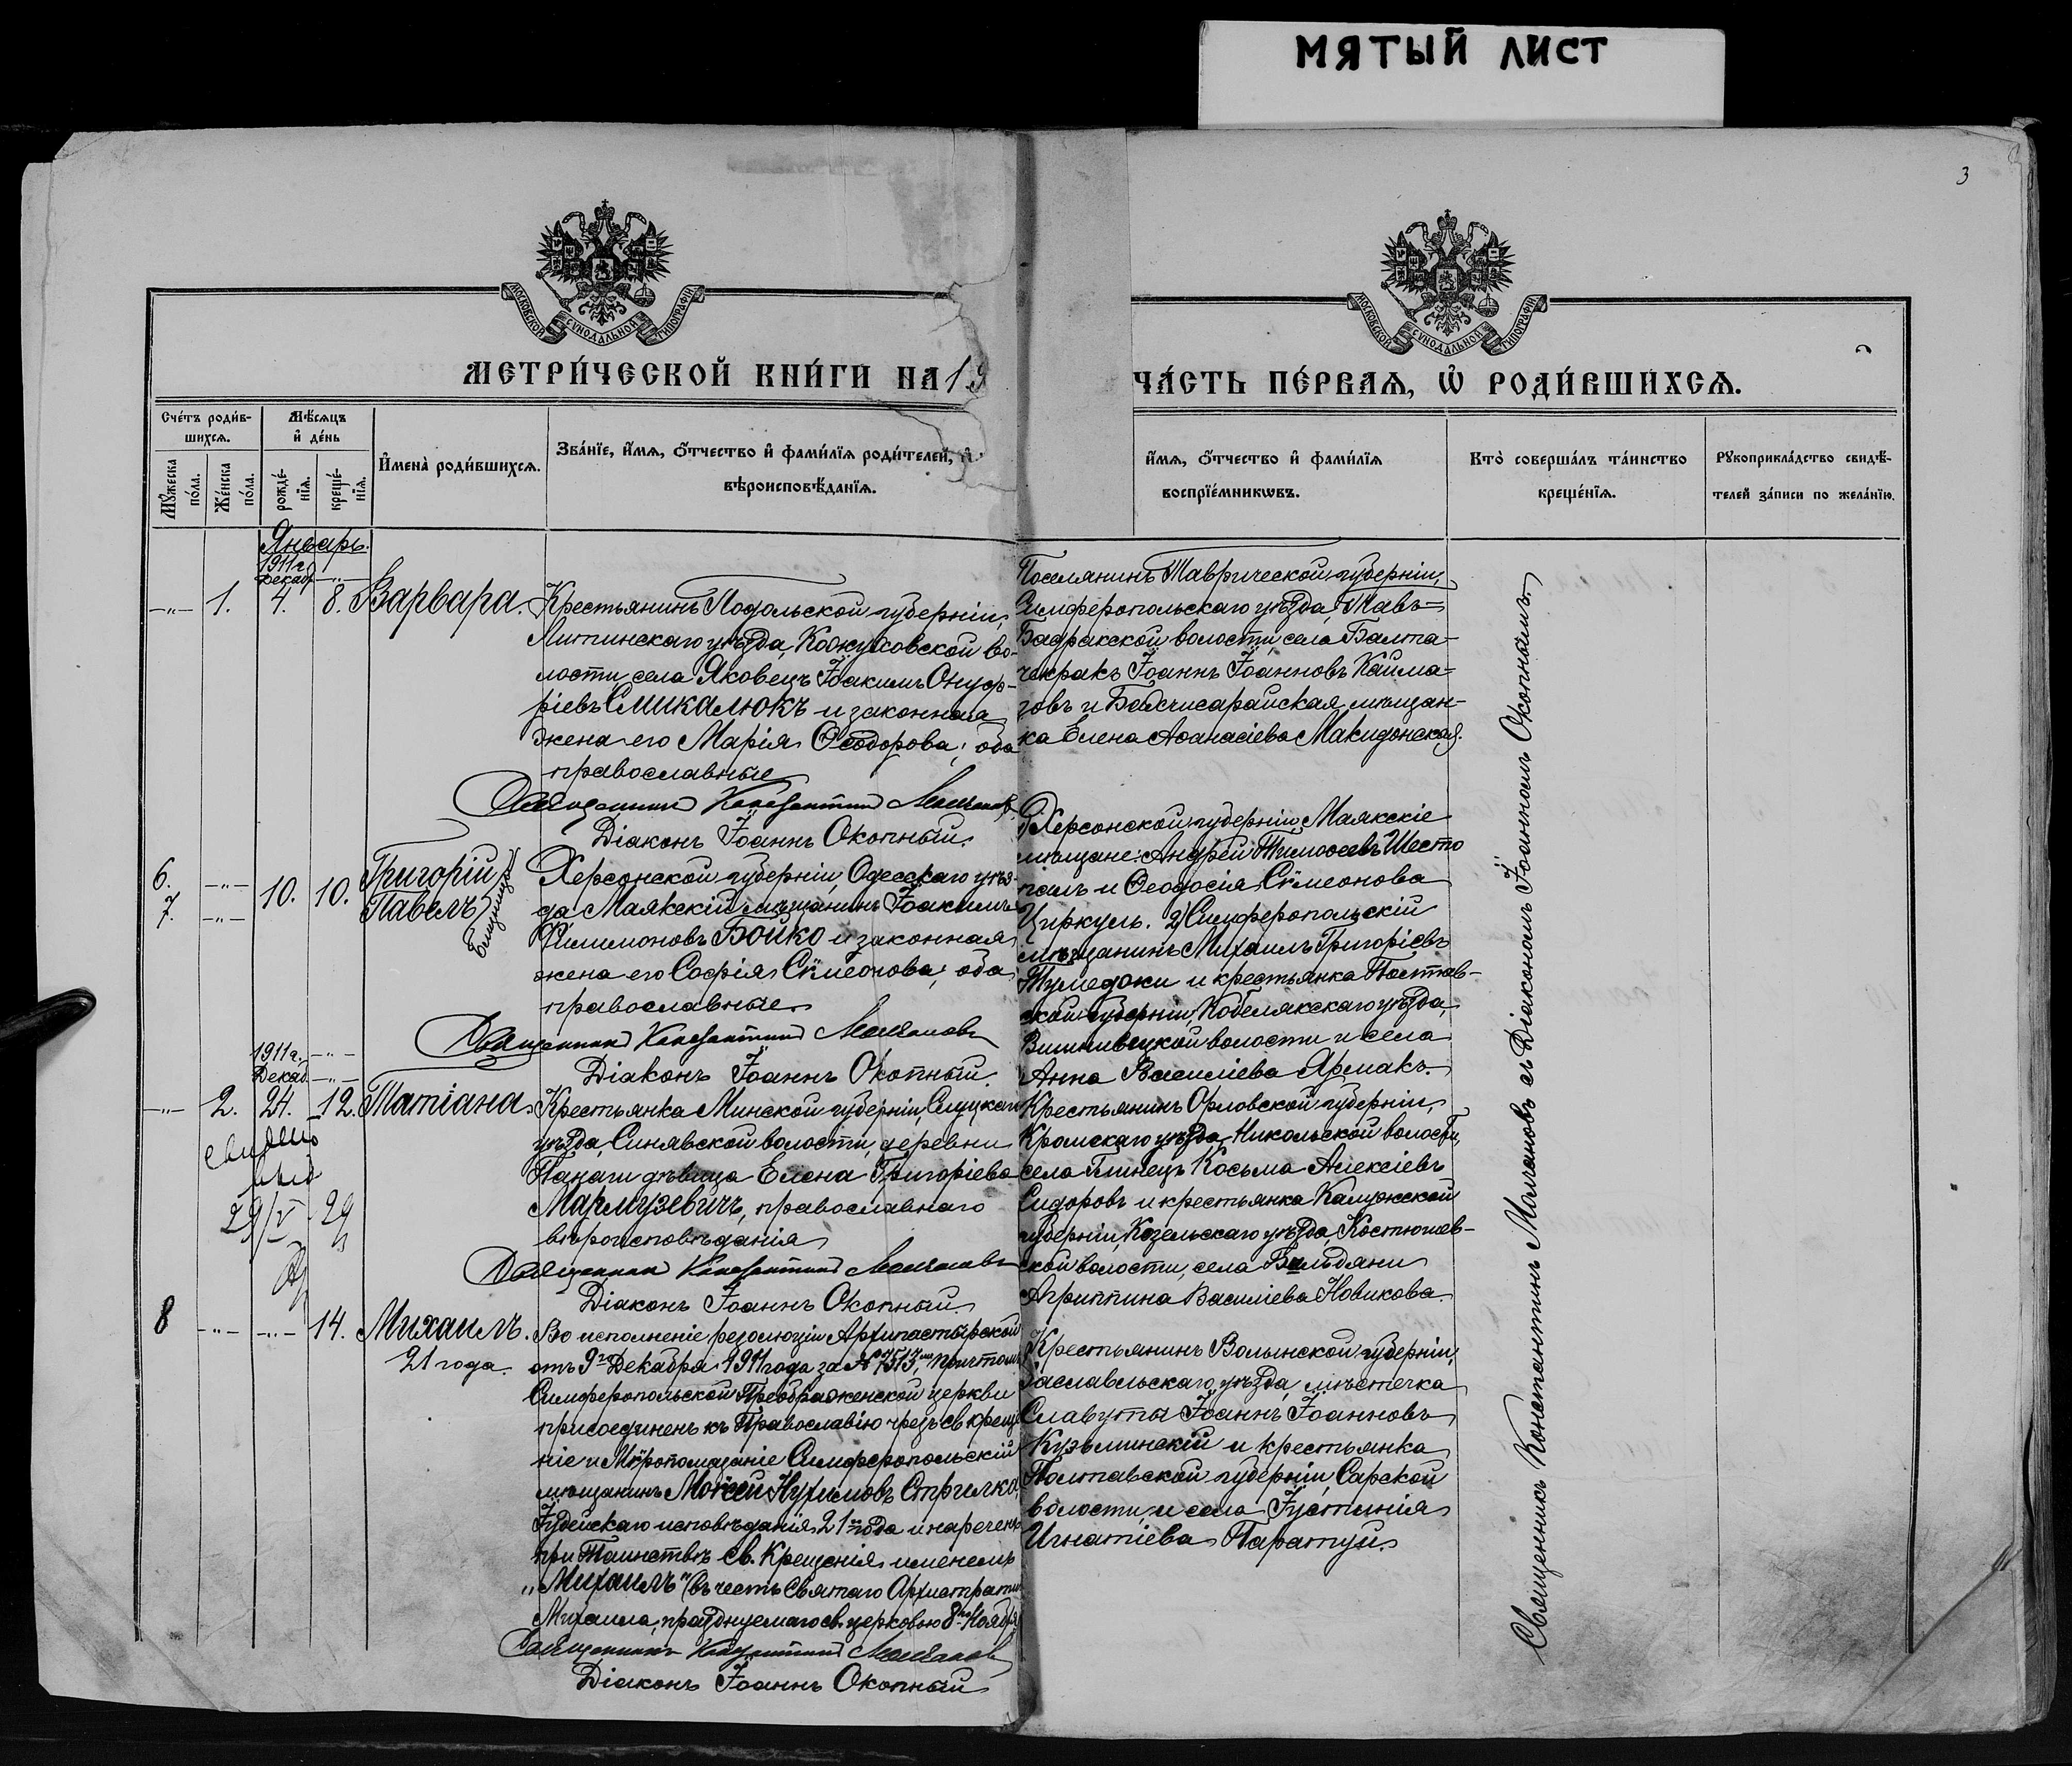 МЯТЫЙ ЛИСТ
3
МОСКОВСКОЙ СѴНОДАЛЬНОЙ ТИПОГРАФІИ
МОСКОВСКОЙ СѴНОДАЛЬНОЙ ТИПОГРАФІИ
МЕТРИ́ЧЕСКОЙ КНИ́ГИ НА 19
ЧА́СТЬ ПЕ́РВАЯ, Ѡ҆ РОДИ́ВШИХСЯ.
Сче́тъ роди́в-
шихся.
Мѣ́сяцъ
и҆ де́нь
Мꙋ́жеска по́ла.
Же́нска по́ла.
рожде́-
нїя.
креще́-
нїя.
И҆мена̀ роди́вшихся.
Зва́нїе, и҆́мя, ѻ҆́тчество и҆ фами́лїя роди́телей, и҆
вѣроисповѣ́данїя.
и҆́мя, ѻ҆́тчество и҆ фами́лїя
воспрїе́мникѡвъ.
Кто̀ соверша́лъ та́инство
креще́нїя.
Рꙋкоприкла́дство свидѣ́-
телей за́писи по жела́нїю.
Январь.
1911 г.
Декаб. -"-
-"- 1. 4. 8. Варвара.
Крестьянинъ Подольской губерніи,
Литинскаго уѣзда, Кожуховской во-
лости, села Яковецъ Іоакимъ Онуф-
ріевъ СМИКАЛЮКЪ и законная
жена его Марія Ѳеодорова; оба
православные
Священникъ Константинъ Молчановъ
Діаконъ Іоаннъ Окопный.
Поселянинъ Таврической губерніи,
Симферопольскаго уѣзда, Тавъ-
Бадракской волости, села Балта-
чекракъ Іоаннъ Іоанновъ Кайма-
зовъ и Бахчисарайская мѣщан-
ка Елена Аѳанасіева Македонская.
6. -"-
7. -"-
10. 10.
Григорій
Павелъ
Близнецы
Херсонской губерніи, Одесскаго уѣз-
да Маякскій мѣщанинъ Іоакимъ
Филимоновъ БОЙКО и законная
жена его Софія Сѵмеонова; оба
православные
Священникъ Константинъ Молчановъ
Діаконъ Іоаннъ Окопный.
1) Херсонской губерніи Маякскіе
мѣщане: Андрей Тимоѳеевъ Шесто
палъ и Ѳеодосія Сѵмеонова
Циркуль. 2) Симферопольскій
мѣщанинъ Михаилъ Григоріевъ
и крестьянка Полтав-
ской губерніи, Кобелякскаго уѣзда,
волости и села
Анна Василіева Ярмакъ.
1911 г. -"-
Декаб. -"-
-"- 2. 24. 12. Татіана.
29/V
Крестьянка Минской губерніи, Слуцкаго
уѣзда, Синявской волости, деревни
Нацачи дѣвица Елена Григоріева
Мармузевичъ, православнаго
вѣроисповѣданія
Священникъ Константинъ Молчановъ
Діаконъ Іоаннъ Окопный.
Крестьянинъ Орловской губерніи,
Кромскаго уѣзда, Никольской волости,
села Глинецъ Косьма Алексіевъ
Сидоровъ и крестьянка Калужской
губерніи, Козельскаго уѣзда,
кой волости, села
Агриппина Василіева Новикова.
8 -"- -"- 14. Михаилъ.
21 года.
Во исполненіе резолюціи Архипастырской
отъ 9го Декабря 1911 года за № 7513, причтомъ
Симферопольской Преображенской церкви
присоединенъ къ Православію чрезъ св. креще
ніе и Мѵропомазаніе Симферопольскій
мѣщанинъ Моѵсей Нухимовъ Стрилка
Іудейскаго исповѣданія, 21 года и нареченъ
при Таинствѣ св. Крещенія именемъ
„Михаилъ" (въ честь Святаго Архистрати
Михаила, празднуемаго св. церковью 8го Ноября)
Священникъ Константинъ Молчановъ
Діаконъ Іоаннъ Окопный
Крестьянинъ Волынской губерніи,
Заславльскаго уѣзда, мѣстечка
Славуты Іоаннъ Іоанновъ
Кузьминскій и крестьянка
Полтавской губерніи, Сарской
волости и села Іустинія
Игнатіева Паратуй.
Священникъ Константинъ Молчановъ съ Діакономъ Іоанномъ Окопнымъ.